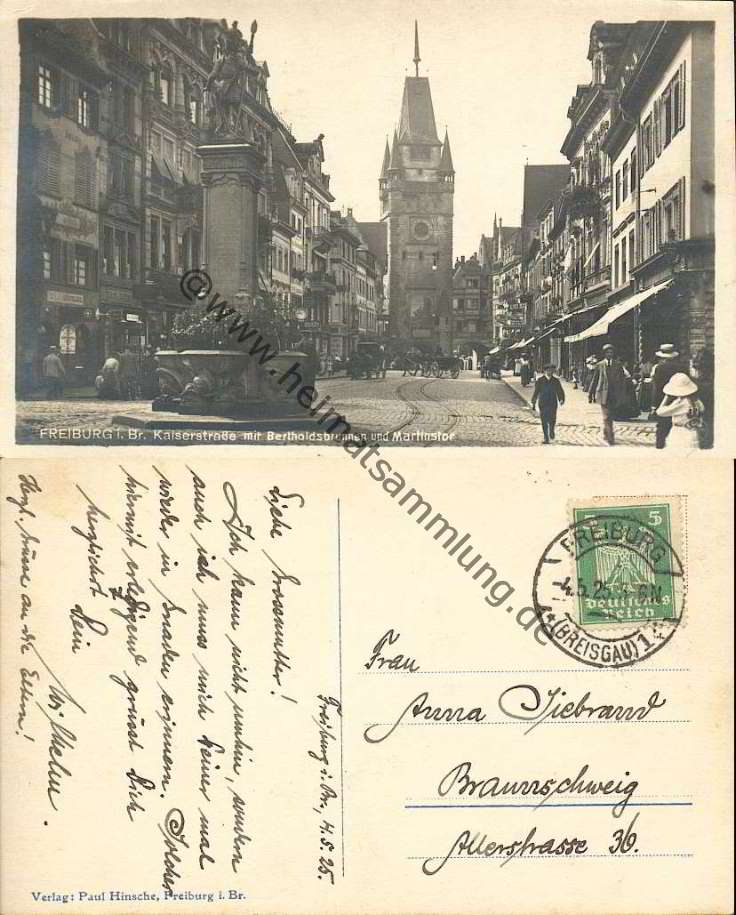 @www.heimatsammlung.de
FREIBURG i. Br. Kaiserstraße mit Bertholdsbrunnen und Martinstor
Freiburg i. Br., 4.5.25.
Liebe Grossmutter!
Ich kann nicht umhin, sondern
auch ich muss mich Deiner mal
wieder in Gnaden erinnern. Solches
hiermit erledigend grüsst Dich
herzlichst Dein
Wilhelm.
Herzl. Grüsse an die Eltern!
5 5
Deutsches
Reich
FREIBURG
4.5.25
* (BREISGAU) 1
Frau
Anna Siebrand
Braunschweig
Allerstrasse 36.
Verlag: Paul Hinsche, Freiburg i. Br.